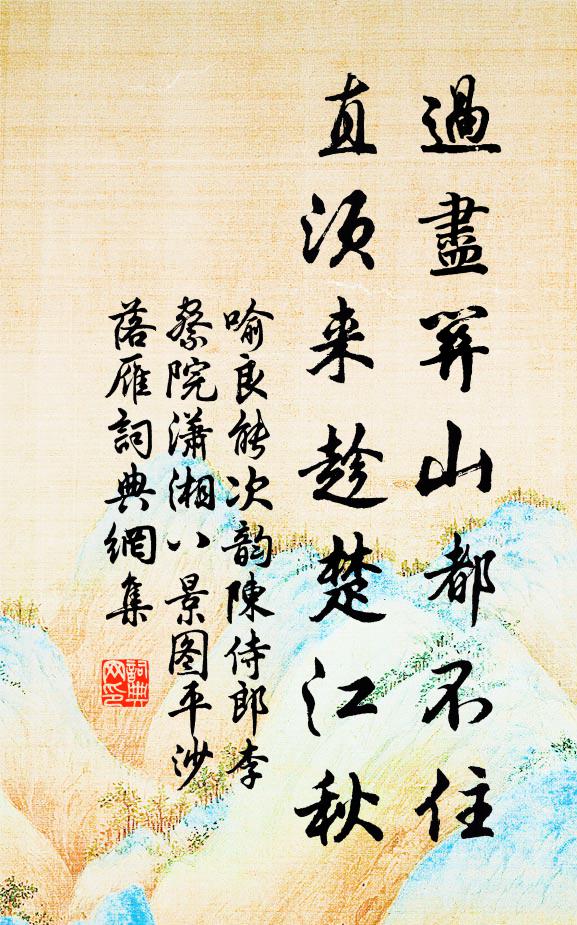 過盡關山都不住
直須来趁楚江秋
喻良能次韵陳侍郎李
察院瀟湘八景图平沙
落雁詞典網集
詞典
网印